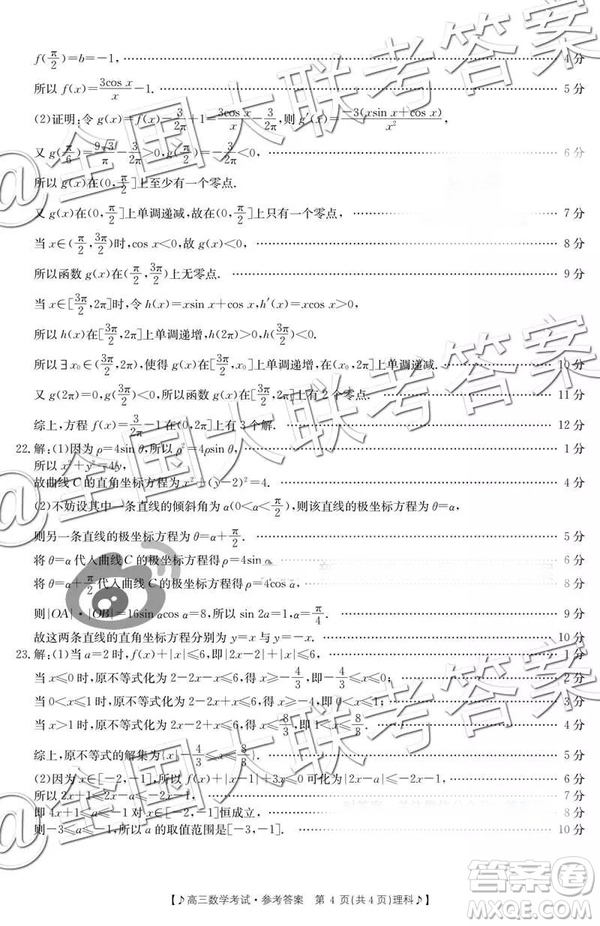 f(π/2)=b=-1, 4分
所以 f(x)=3cos x/x-1. 5分
(2)证明:令 g(x)=f(x)-3/2π+1=3cos x/x-3/2π,则 g′(x)=-3(xsin x+cos x)/x², 
又 g(π/6)=9√3/π-3/2π>0,g(π/2)=-3/2π<0, 6分
所以 g(x)在(0,π/2]上至少有一个零点.
又 g(x)在(0,π/2]上单调递减,故在(0,π/2]上有一个零点. 7分
当 x∈(π/2,3π/2)时,cos x<0,故 g(x)<0, 8分
所以函数 g(x)在(π/2,3π/2)上无零点. 9分
当 x∈[3π/2,2π]时,令 h(x)=xsin x+cos x,h′(x)=xcos x>0,
所以 h(x)在[3π/2,2π]上单调递增,h(2π)>0,h(3π/2)<0.
所以∃x₀∈(3π/2,2π),使得 g(x)在[3π/2,x₀)上单调递增,在(x₀,2π]上单调递减. 10分
又 g(2π)=0,g(3π/2)<0,所以 g(x)在[3π/2,2π]上有 2 个零点. 11分
综上,方程 f(x)=3/2π-1 在(0,2π]上有 3 个解. 12分
22.解:(1)因为 ρ=4sin θ,所以 ρ²=4ρsin θ, 1分
所以 x²+y²=4y,
故曲线 C 的直角坐标方程为 x²+(y-2)²=4. 4分
(2)不妨设其中一条直线的倾斜角为 α(0<α<π/2),则该直线的极坐标方程为 θ=α,
则另一条直线的极坐标方程为 θ=α+π/2. 5分
将 θ=α 代入曲线 C 的极坐标方程得 ρ=4sin α, 6分
将 θ=α+π/2代入曲线 C 的极坐标方程得 ρ=4cos α, 8分
则|OA|·|OB|=16sin αcos α=8,所以 sin 2α=1,α=π/4. 9分
故这两条直线的直角坐标方程分别为 y=x 与 y=-x. 10分
23.解:(1)当 a=2 时,f(x)+|x|≤6,即|2x-2|+|x|≤6. 1分
当 x≤0 时,原不等式化为 2-2x-x≤6,得 x≥-4/3,即-4/3≤x≤0; 2分
当 0<x≤1 时,原不等式化为 2-2x+x≤6,得 x≥-4,即 0<x≤1; 3分
当 x>1 时,原不等式化为 2x-2+x≤6,得 x≤8/3,即 1<x≤8/3. 4分
综上,原不等式的解集为{x|-4/3≤x≤8/3}. 5分
(2)因为 x∈[-2,-1],所以 f(x)+|x-1|+3x≤0 可化为|2x-a|≤-2x-1, 6分
所以 2x+1≤2x-a≤-2x-1, 7分
即 4x+1≤a≤-1 对 x∈[-2,-1]恒成立, 8分
则-3≤a≤-1,所以 a 的取值范围是[-3,-1]. 10分
【♪高三数学考试·参考答案 第 4 页(共 4 页)理科♪】
@全国大联考答案